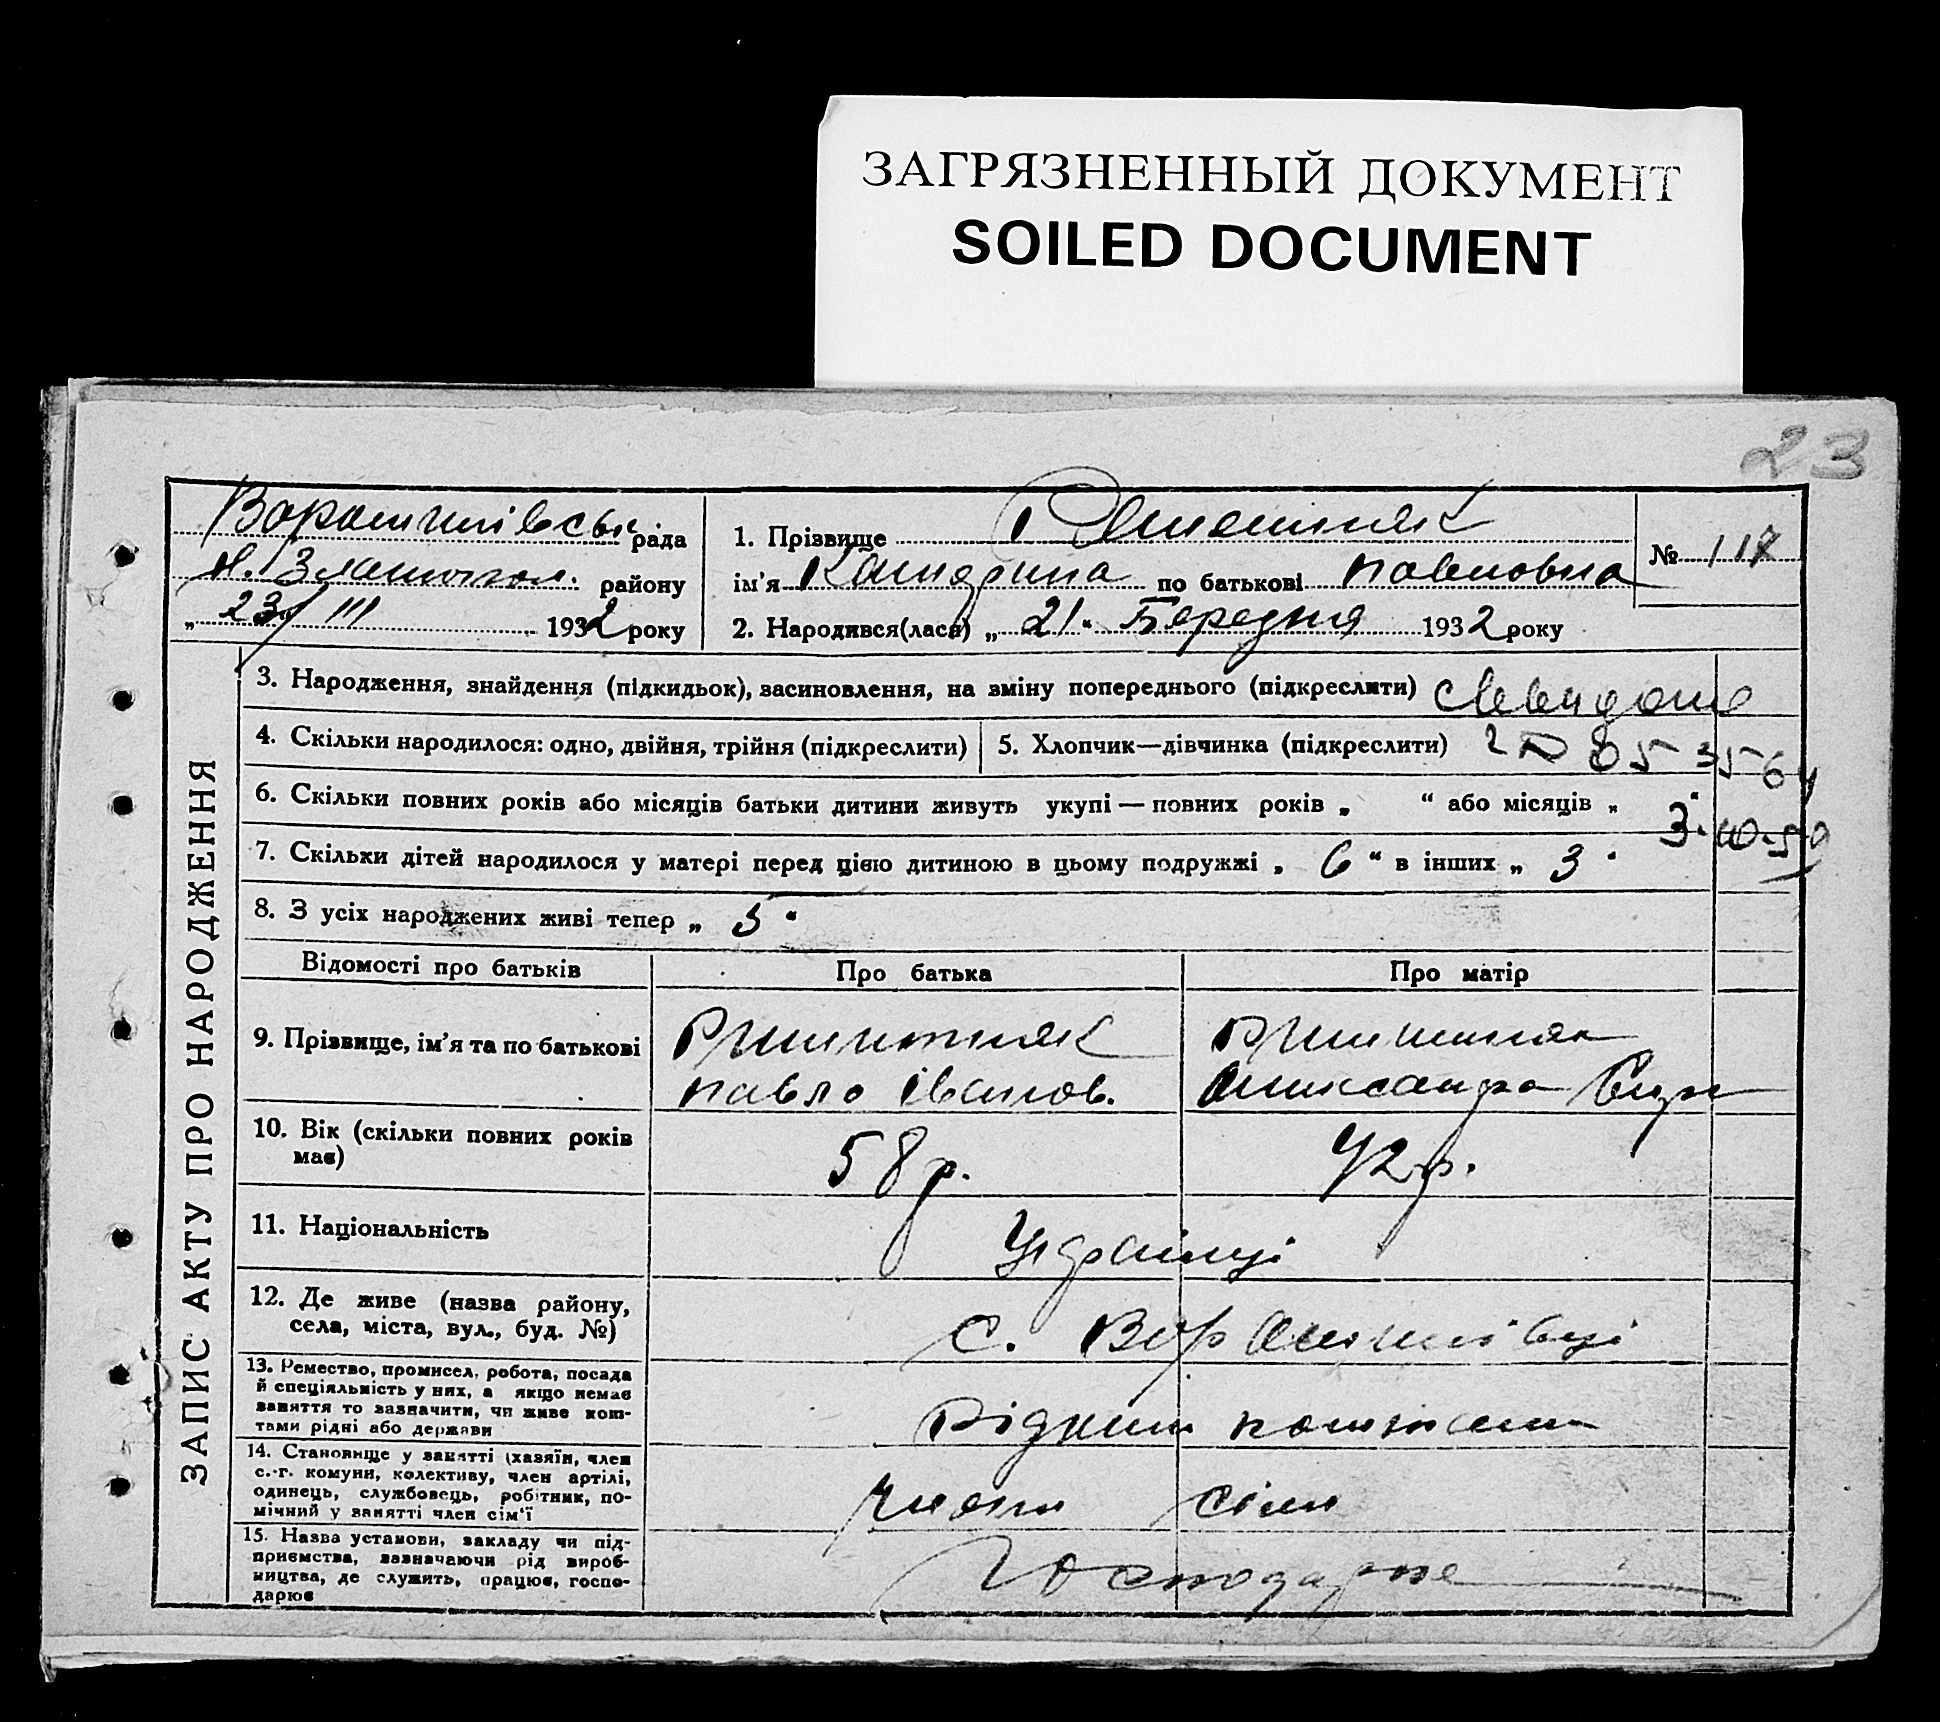 ЗАГРЯЗНЕННЫЙ ДОКУМЕНТ
SOILED DOCUMENT
23
ЗАПИС АКТУ ПРО НАРОДЖЕННЯ
рада
району
„ 23/III 1932 року
1. Прізвище
ім'я Катерина по батькові Павловна
2. Народився(лася) „ 21 “ Березня 1932 року
№ 117
3. Народження, знайдення (підкидьок), засиновлення, на зміну попереднього (підкреслити)
4. Скільки народилося: одно, двійня, трійня (підкреслити)
5. Хлопчик—дівчинка (підкреслити)
6. Скільки повних років або місяців батьки дитини живуть укупі — повних років „ “ або місяців „ “
3.10.59
7. Скільки дітей народилося у матері перед цією дитиною в цьому подружжі „ 6 “ в інших „ 3 “
8. З усіх народжених живі тепер „ 5 “
Відомості про батьків
Про батька
Про матір
9. Прізвище, ім'я та по батькові
Павло Іванов.
Олександра
10. Вік (скільки повних років має)
58 р.
42 р.
11. Національність
Українці
12. Де живе (назва району,
села, міста, вул., буд. №)
с.
13. Ремество, промисел, робота, посада
й спеціяльність у них, а якщо немає
заняття то зазначити, чи живе кош-
тами рідні або держави
14. Становище у занятті (хазяїн, член
с.-г. комуни, колективу, член артілі,
одинець, службовець, робітник, по-
мічний у занятті член сім'ї
член сімї
15. Назва установи, закладу чи під-
приємства, зазначаючи рід вироб-
ництва, де служить, працює, госпо-
дарює